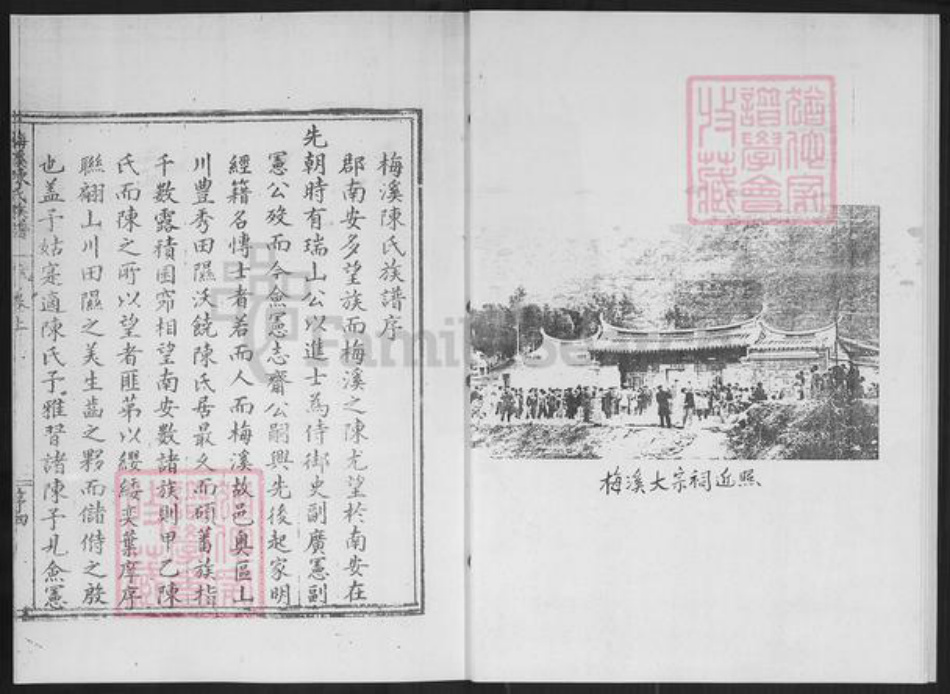 梅溪陳氏族譜序
郡南安多望族而梅溪之陳尤望於南安在
先朝時有瑞山公以進士為侍御史副廣憲副
憲公歿而今僉憲志齋公嗣興先後起家明
經籍名博士者若而人而梅溪故邑奧區山
川豐秀田隰沃饒陳氏居最久而碩蕃族指
千數露積囷窌相望南安數諸族則甲乙陳
氏而陳之所以望者匪第以纓緌奕葉庠序
聯翩山川田隰之美生齒之夥而儲偫之殷
也蓋予姑寔適陳氏予雅習諸陳予見僉憲
梅溪陳氏族譜
卷上
序四
梅溪大宗祠近照
譜學會
收藏
FamilySearch